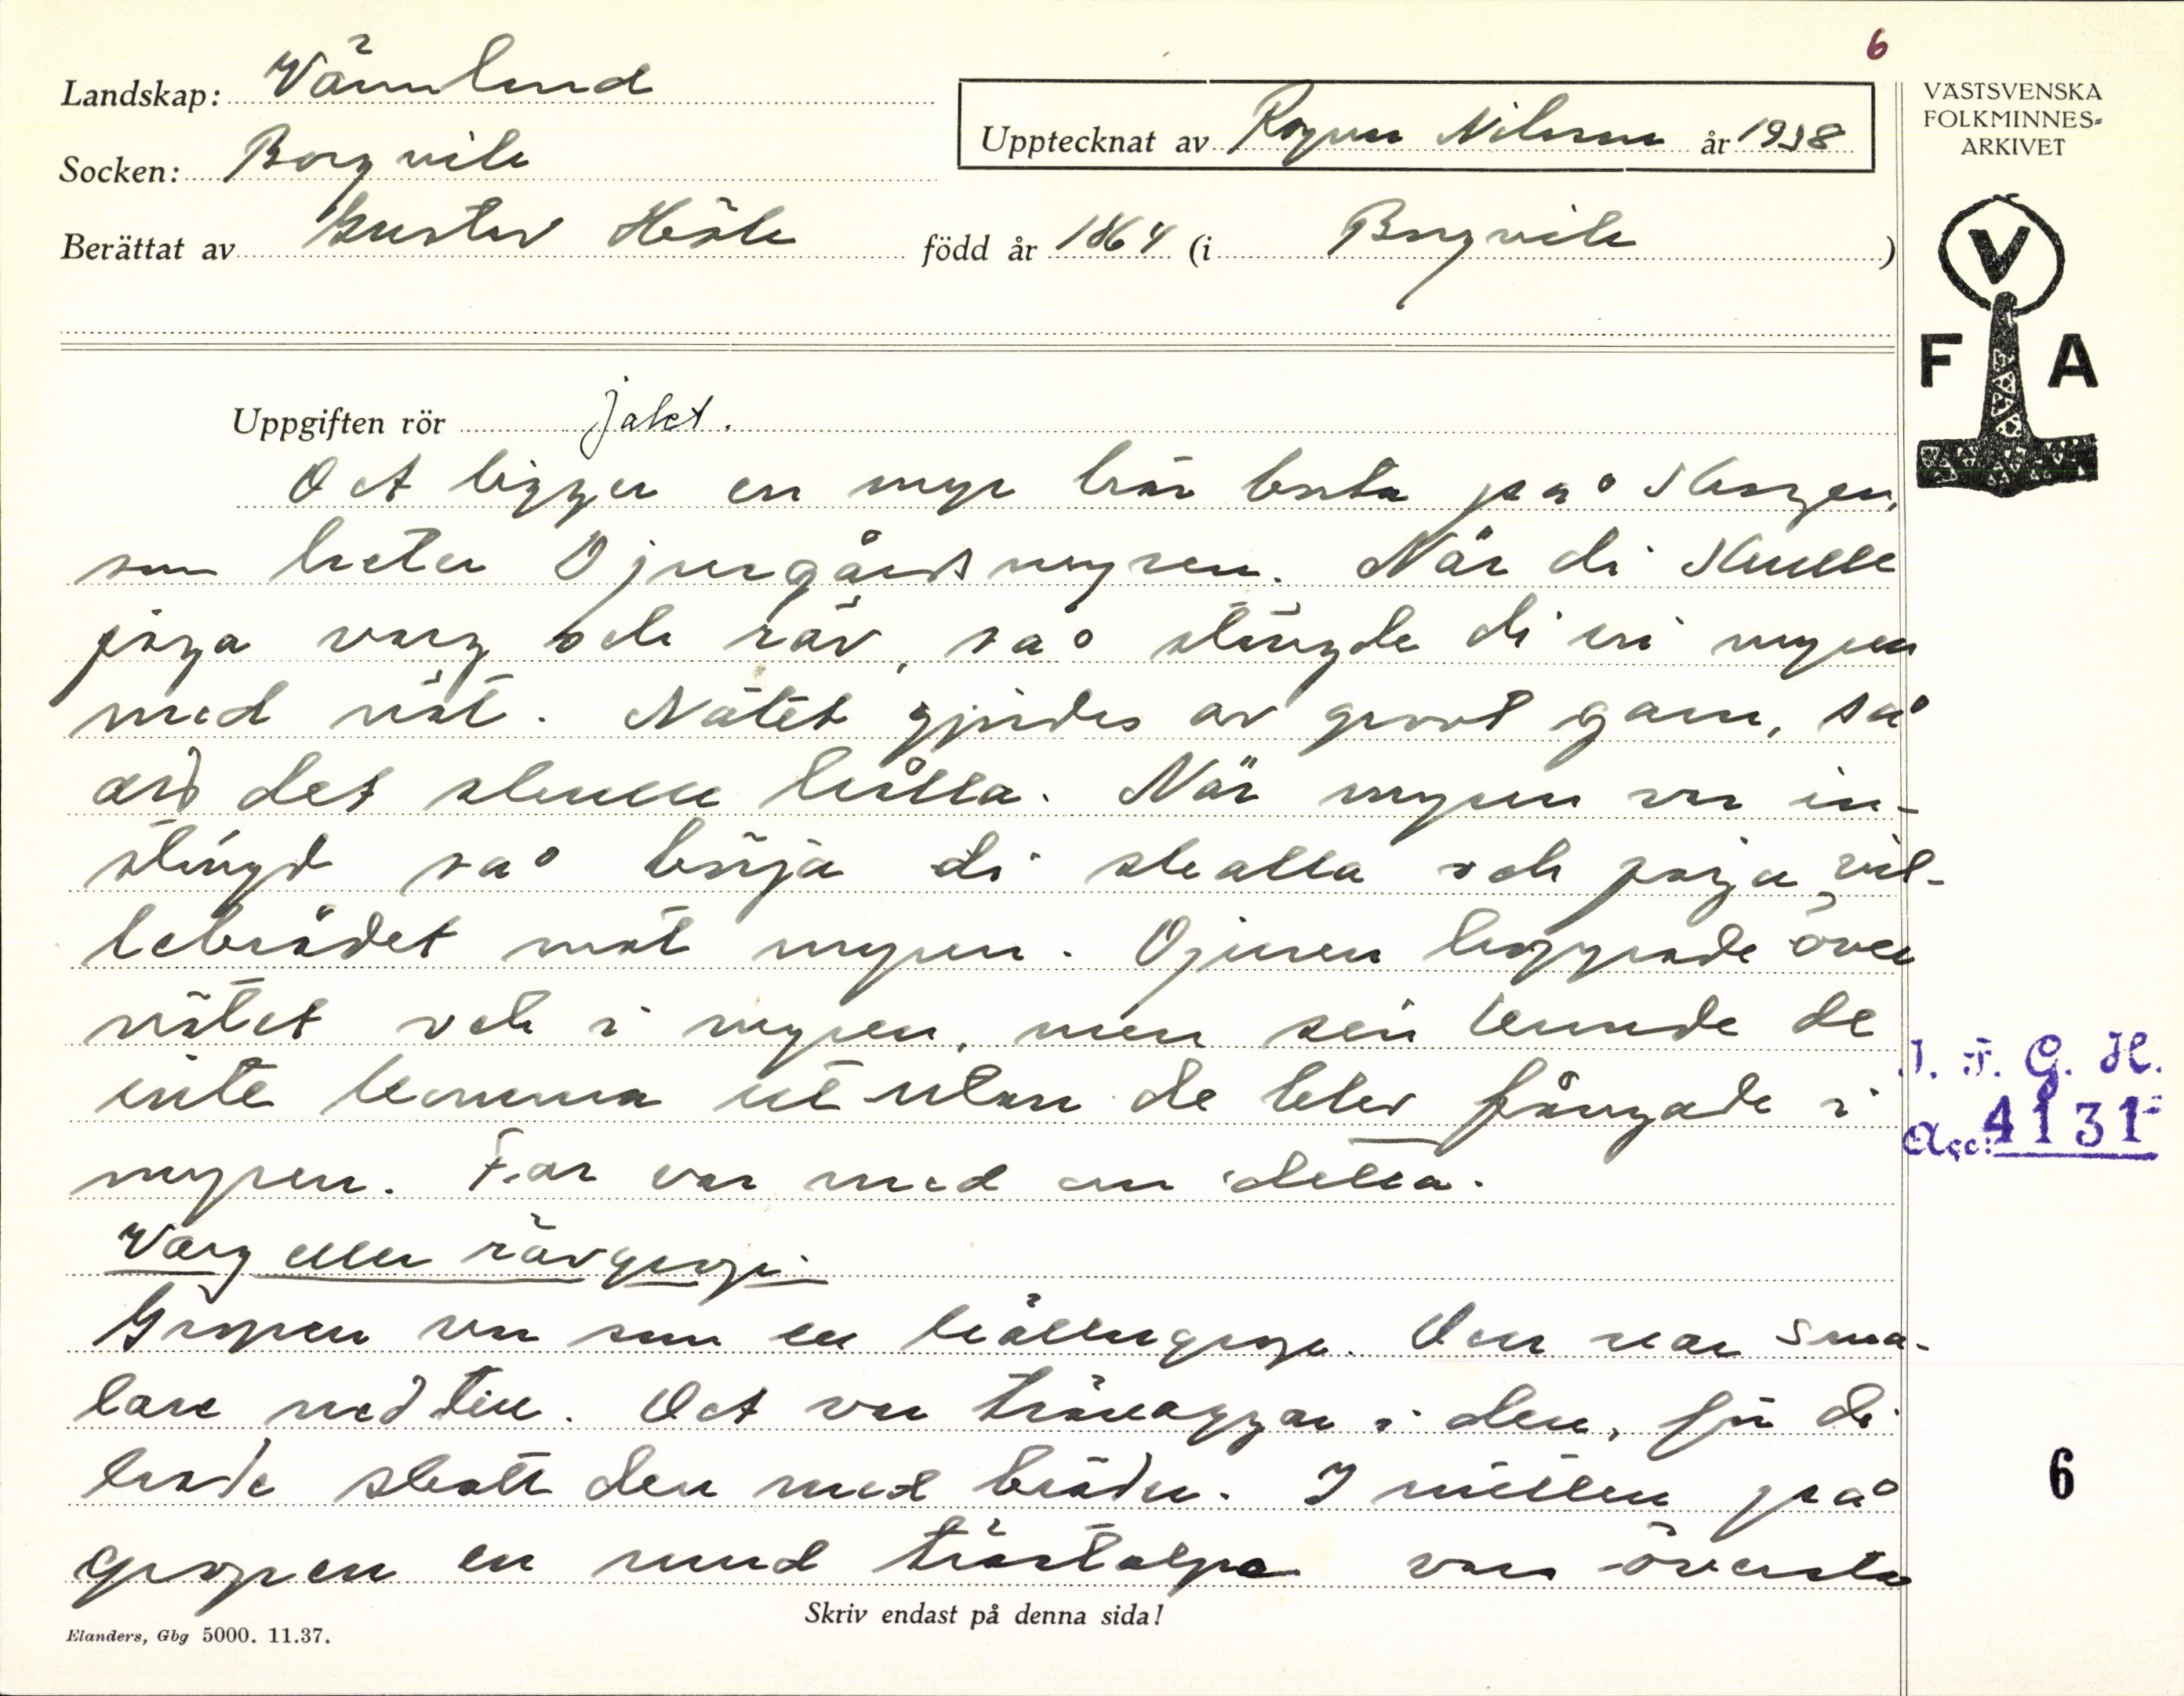 6
Landskap: Värmland
Upptecknat av Ragnar Nilsson år 1938
VÄSTSVENSKA
FOLKMINNES-
ARKIVET
Socken: Borgvik
Berättat av Gustav född år 1864 (i Borgvik)
V
F A
Uppgiften rör jakt.
Det ligger en myr här borta på skogen,
som heter Djurgårdsmyren. När di skulle
jaga varg och räv, så stängde di in myren
med nät. Nätet gjordes av grovt garn, så
att det skulle hålla. När myren var in-
stängd så börja di skalla och jaga vil-
lebrådet mot myren. Djuren hoppade över
nätet och i myren, men sen kunde de
inte komma ut utan de blev fångade i
myren. Far var med om detta.
I. F. G. H.
Acc: 4131
Varg eller rävgrop.
Gropen var som en källargrop. Den var sma-
lare ned till. Det var träväggar i den, för di
hade slått den med bräder. I mitten på
gropen en rund trästolpe vars översta
6
Skriv endast på denna sida!
Elanders, Gbg 5000. 11.37.